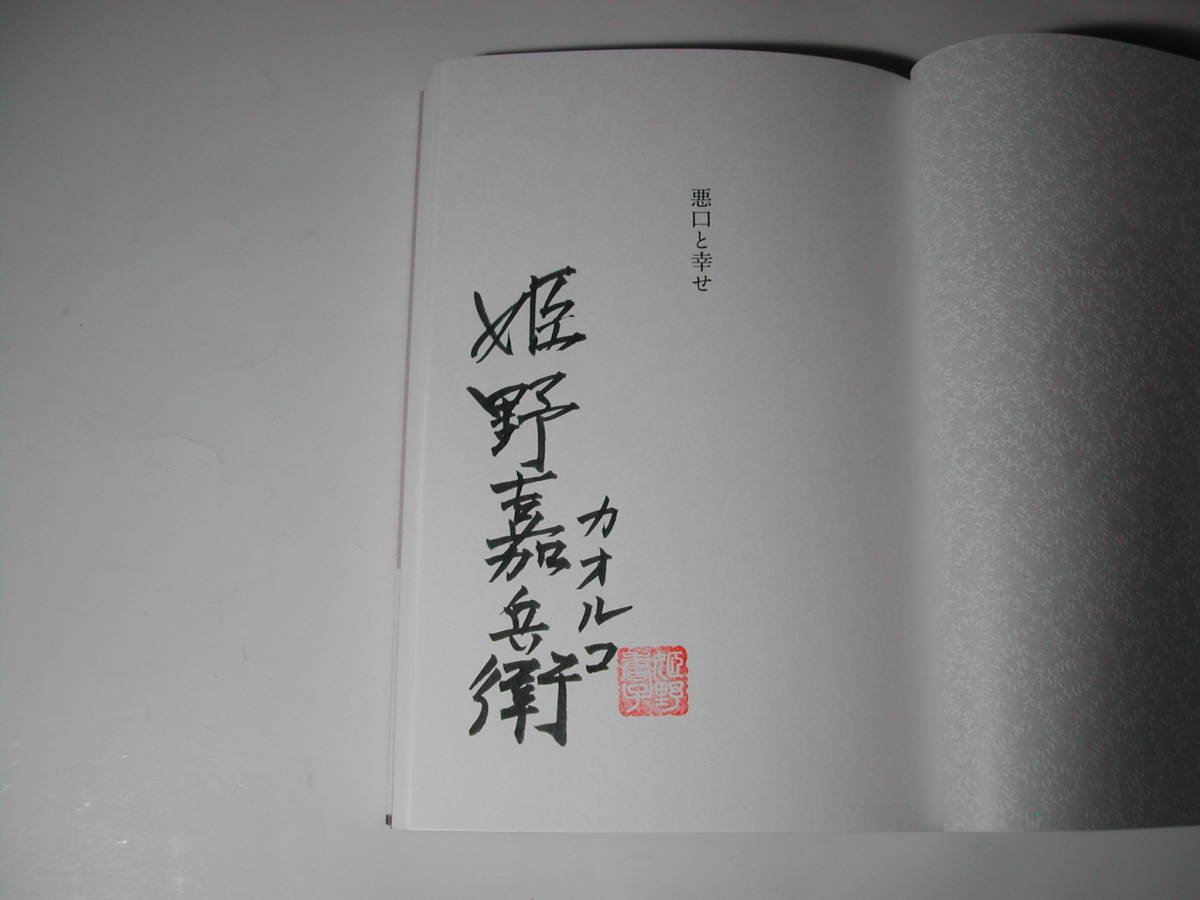 悪口と幸せ
カオルコ
姫野嘉兵衛
姫野